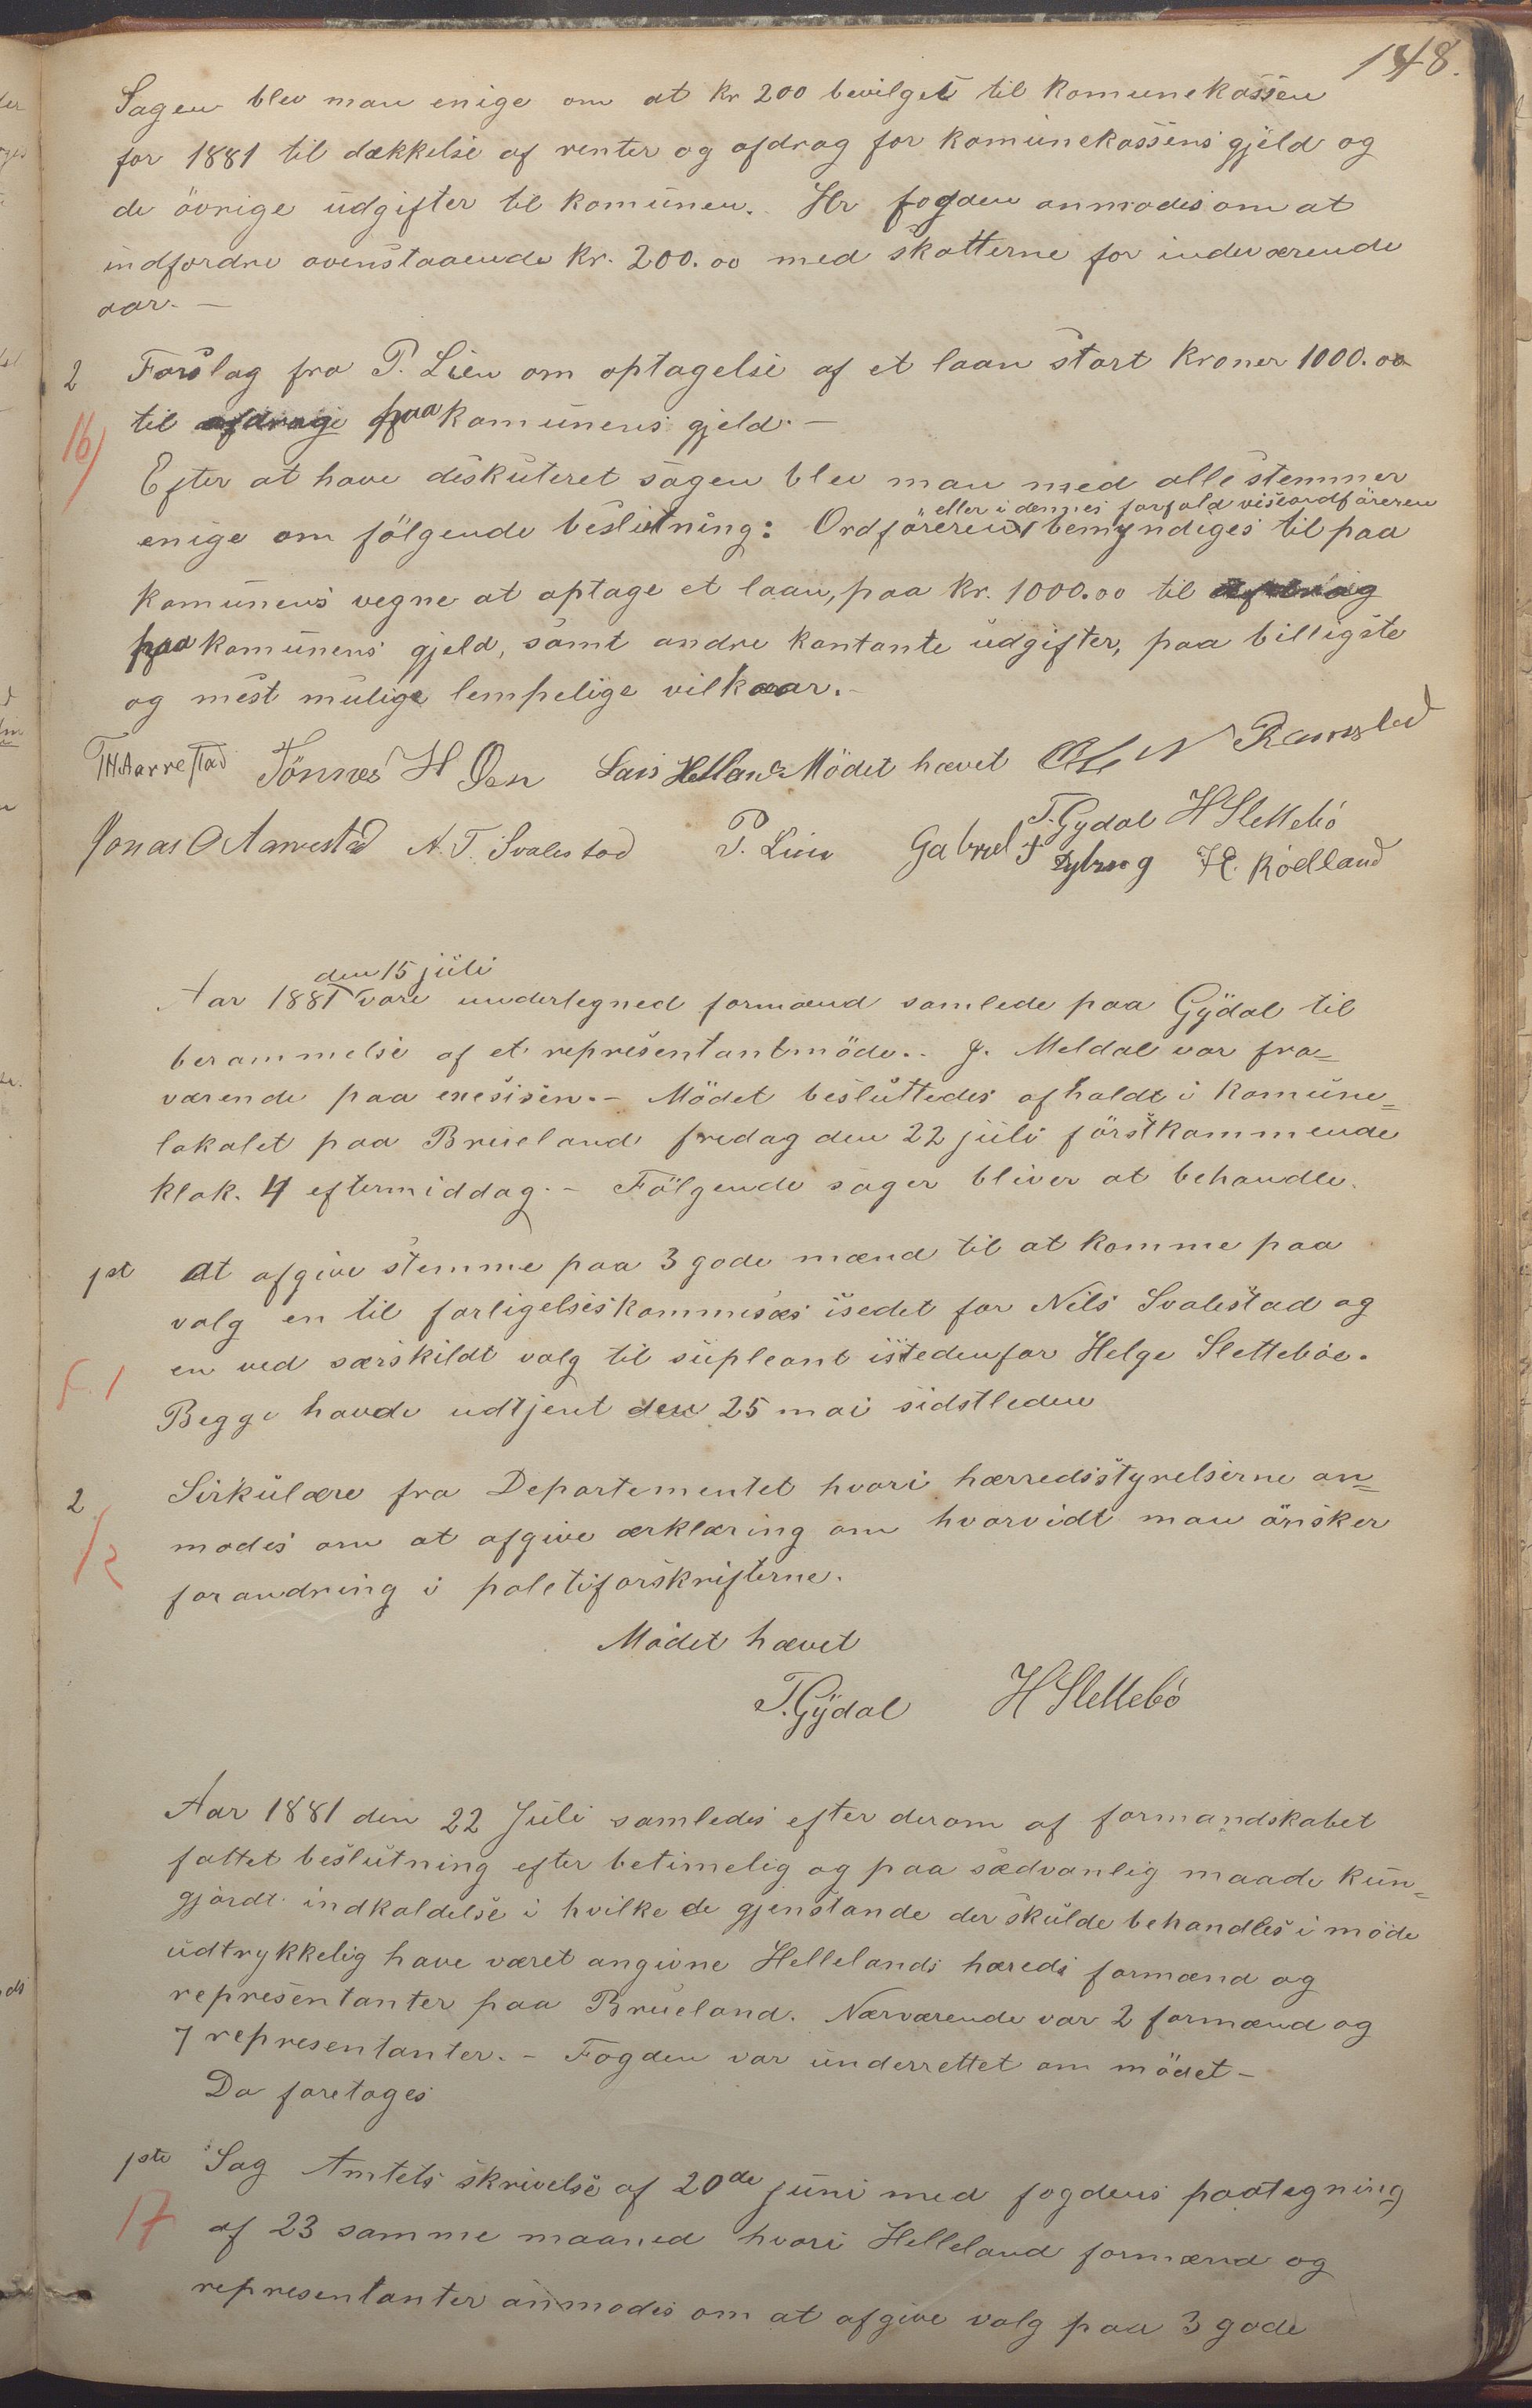 148.
Sagen blev man enige om at kr 200 bevilget til Komunekassen
for 1881 til dækkelse af renter og afdrag for komunekassens gjeld og
de övrige udgifter til komunen. Hr fogden anmodes om at
indfordre ovenstaaende kr. 200.00 med skatterne for indeværende
aar. —
2 Forslag fra P. Lien om optagelse af et laan stort kroner 1000.00
16/ til afdrage paa komunens gjeld. —
Efter at have diskuteret sagen blev man med alle stemmer
eller i dennes forfald viseordföreren
enige om fölgende beslutning: Ordföreren bemyndiges til paa
komunens vegne at optage et laan, paa kr. 1000.00 til afdrag
paa komunens gjeld, samt andre kontante udgifter, paa billigste
og mest mulige lempelige vilkaar. —
TH Aarrestad Tönnes H Øen Lars Helland Mödet hævet Ramsled
T. Gydal H Slettebö
Jonas O Aarrestad A. T. Svalestad P. Lien Gabriel T Dybing H. Röelland
den 15 juli
Aar 1881 vare undertegned formænd samlede paa Gydal til
berammelse af et representantmöde. . J. Meldal var fra=
værende paa exesisen. — Mödet besluttedes afholdt i komune=
lokalet paa Brueland fredag den 22 juli förstkommende
klok. 4 eftermiddag. — Fölgende sager bliver at behandle.
1st At afgive stemme paa 3 gode mænd til at komme paa
valg en til forligelseskommisæs isedet for Nils Svalestad og
F. 1 en ved særskildt valg til supleant istedenfor Helge Slettebøe.
Begge havde udtjent den 25 mai sidstleden
2 Sirkulære fra Departementet hvori hærredsstyrelserne an=
/2 modes om at afgive ærklæring om hvorvidt man önsker
forandring i poletiforskrifterne.
Mödet hævet
T. Gydal H Slettebö
Aar 1881 den 22 Juli samledes efter derom af formandskabet
fattet beslutning efter betimelig og paa sædvanlig maade kun=
gjordt indkaldelse i hvilke de gjenstande der skulde behandles i möde
udtrykkelig have været angivne Hellelands hæreds formænd og
representanter paa Brueland. Nærværende var 2 formænd og
7 representanter. — Fogden var underrettet om mödet —
Da foretoges
1ste Sag Amtets skrivelse af 20de juni med fogdens paategning
17 af 23 samme maaned hvori Helleland formænd og
representanter anmodes om at afgive valg paa 3 gode